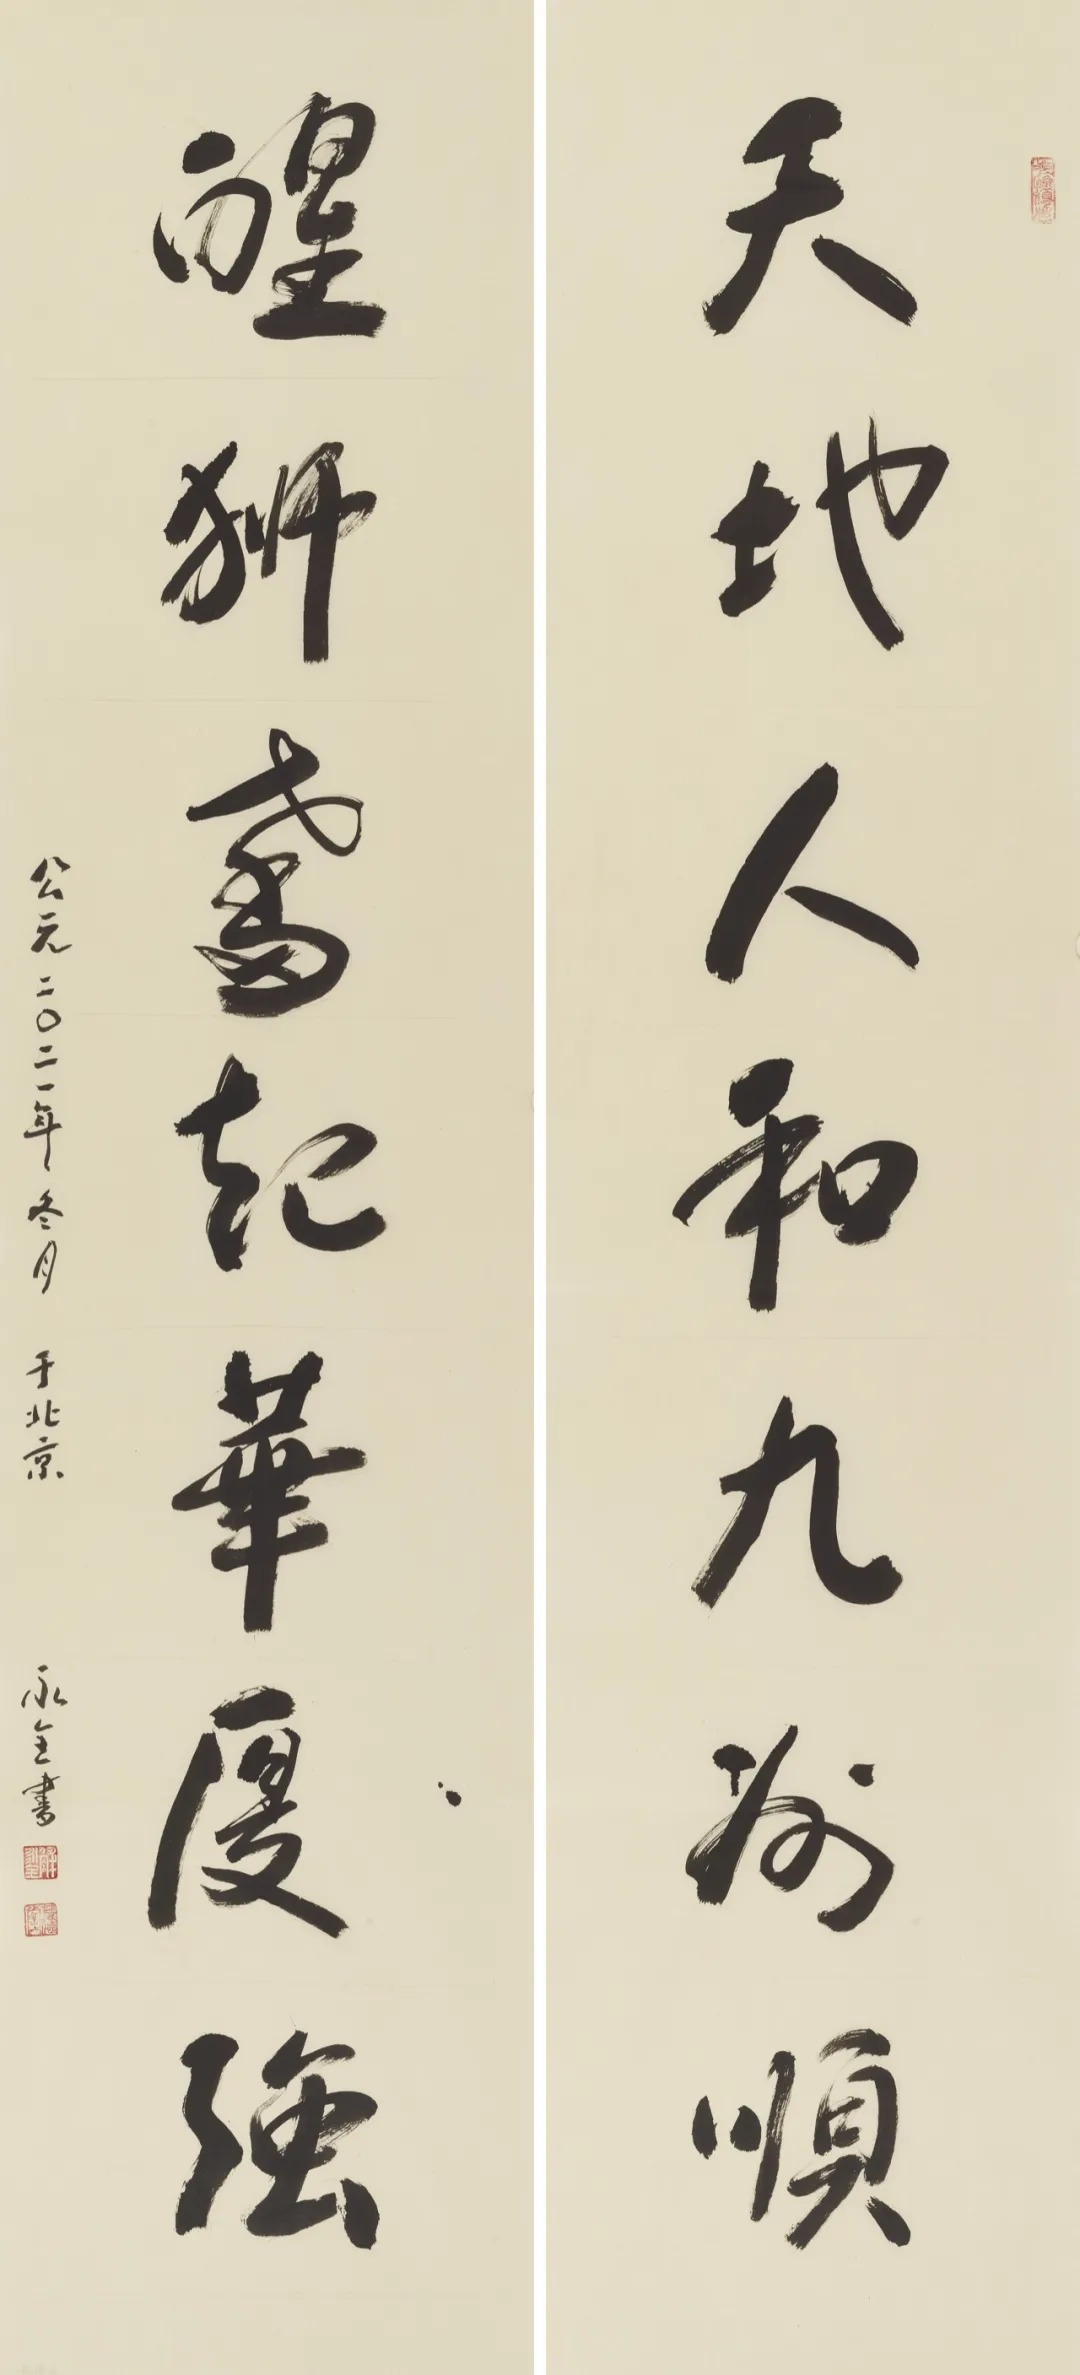 天地人和九州順
醒獅奮起華厦強
公元二〇二一年冬月 于北京 永全書